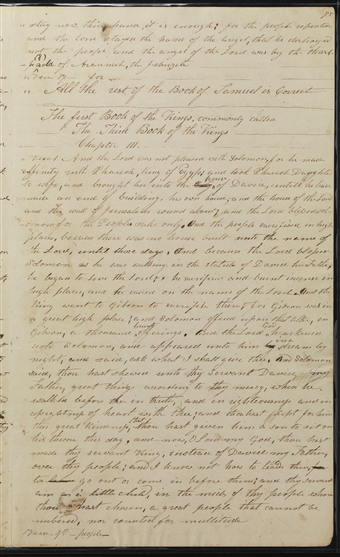 stay now thine hand, it is enough; for the people repented
and the Lord stayed the hand of the angel, that he destroyed
not the people and the angel of the Lord was by the thresh-
of Araunah, the Jebusite
All the rest of the Book of Samuel is Correct
The first Book of the Kings, commonly called
The Third Book of the Kings
Chapter III.
And the Lord was not pleased with Solomon, for he made
affinity with Pharaoh, King of Egypt, and took Pharaoh's Daughter
to wife, and brought her into the house of David, until he had
made an end of building his own house, and the house of the Lord
and the wall of Jerusalem round about, and the Lord blessed
for the People sake only. And the people sacrificed in high
places, because there was no house built unto the name of
the Lord, until those days. And because the Lord blessed
Solomon as he was walking in the statutes of David his father,
he began to love the Lord, & he sacrificed and burnt incense in
high places, and he called on the name of the Lord. And the
King went to Gibeon to sacrifice there, for Gibeon was in
a great high place; and Solomon offered upon that altar, in
Gibeon, a thousand burnt offerings. And the Lord God hearkened
unto Solomon, and appeared unto him in a dream by
night, and said, ask what I shall give thee. And Solomon
said, thou hast shewed unto thy Servant David my
Father, great things according to thy mercy, when he
walked before thee in truth, and in righteousness and in
uprightness of heart with thee, and thou hast kept for him
this great kindness, that thou hast given him a son to sit on
his throne this day, and now, O Lord my God, thou hast
made thy servant King, instead of David my Father,
over thy people; and I know not how to lead them,
to go out or come in before them; and thy servant
am as a little child, in the midst of thy people whom
thou hast chosen, a great people that cannot be
numbered, nor counted for multitude
people